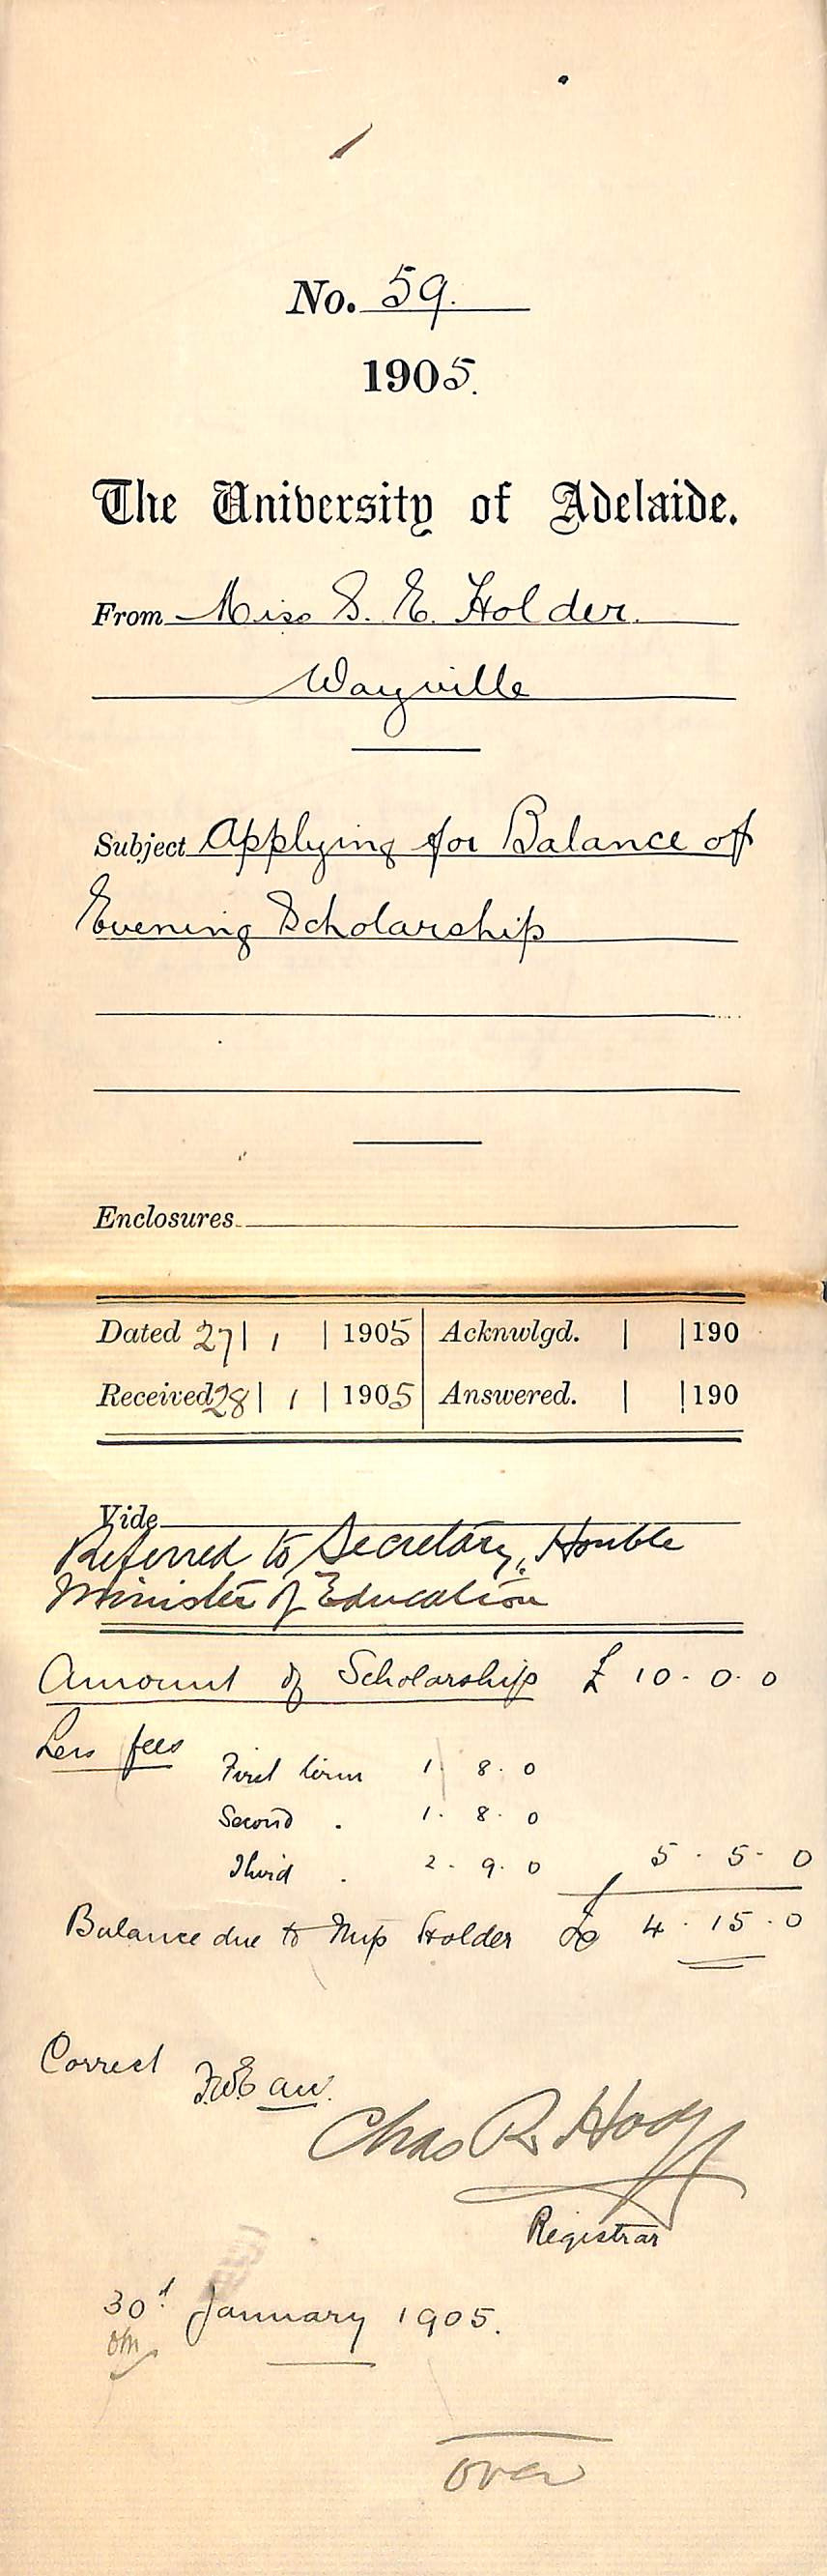 No. 59.
1905.
The University of Adelaide.
From Miss S. E. Holder.
Wayville
Subject Applying for Balance of
Evening Scholarship
Enclosures
Dated 27 | 1 | 1905 | Acknwlgd. | | 190
Received 28 | 1 | 1905 | Answered. | | 190
Vide
Referred to Secretary, Honble
Minister of Education
Amount of Scholarship £ 10 - 0 - 0
Less fees
First term 1 8 - 0
Second . 1 - 8 - 0
Third . 2 - 9 - 0 5 - 5 - 0
Balance due to Miss Holder £ 4 - 15 - 0
Correct
Chas R. Hodge
Registrar
30th January 1905.
over